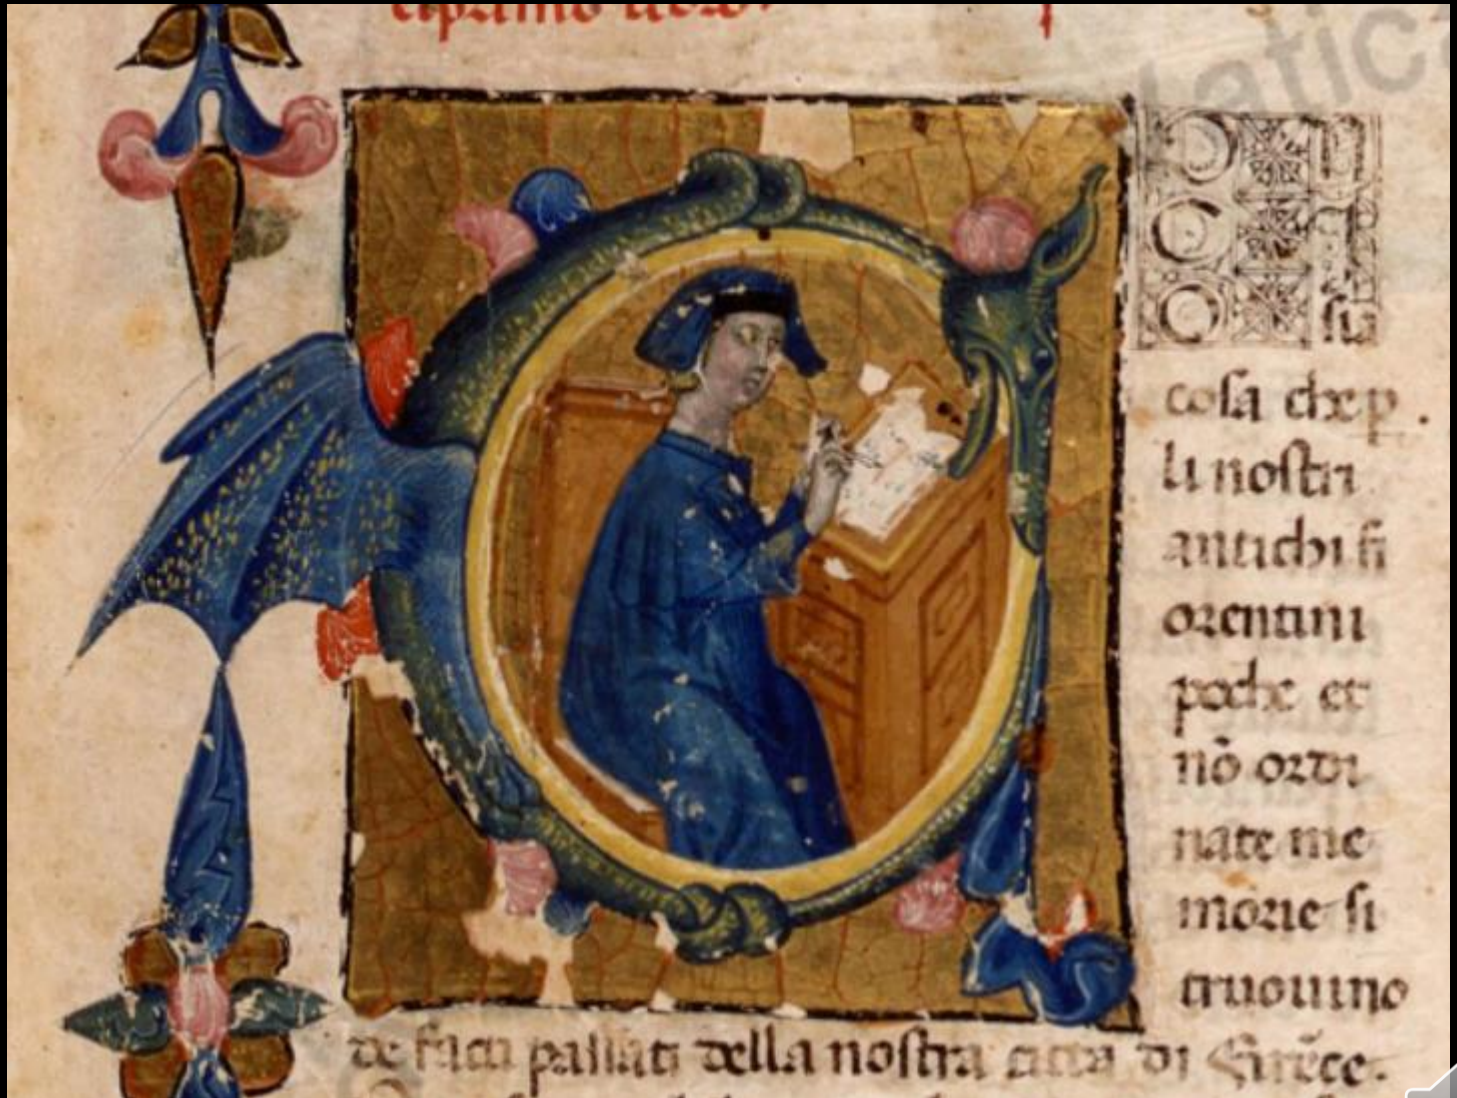 cosa che p
li nostri
antichi fi
orentini
poche et
nō ordi
nate me
morie si
truouino
de facti passati della nostra citta di Firēce.